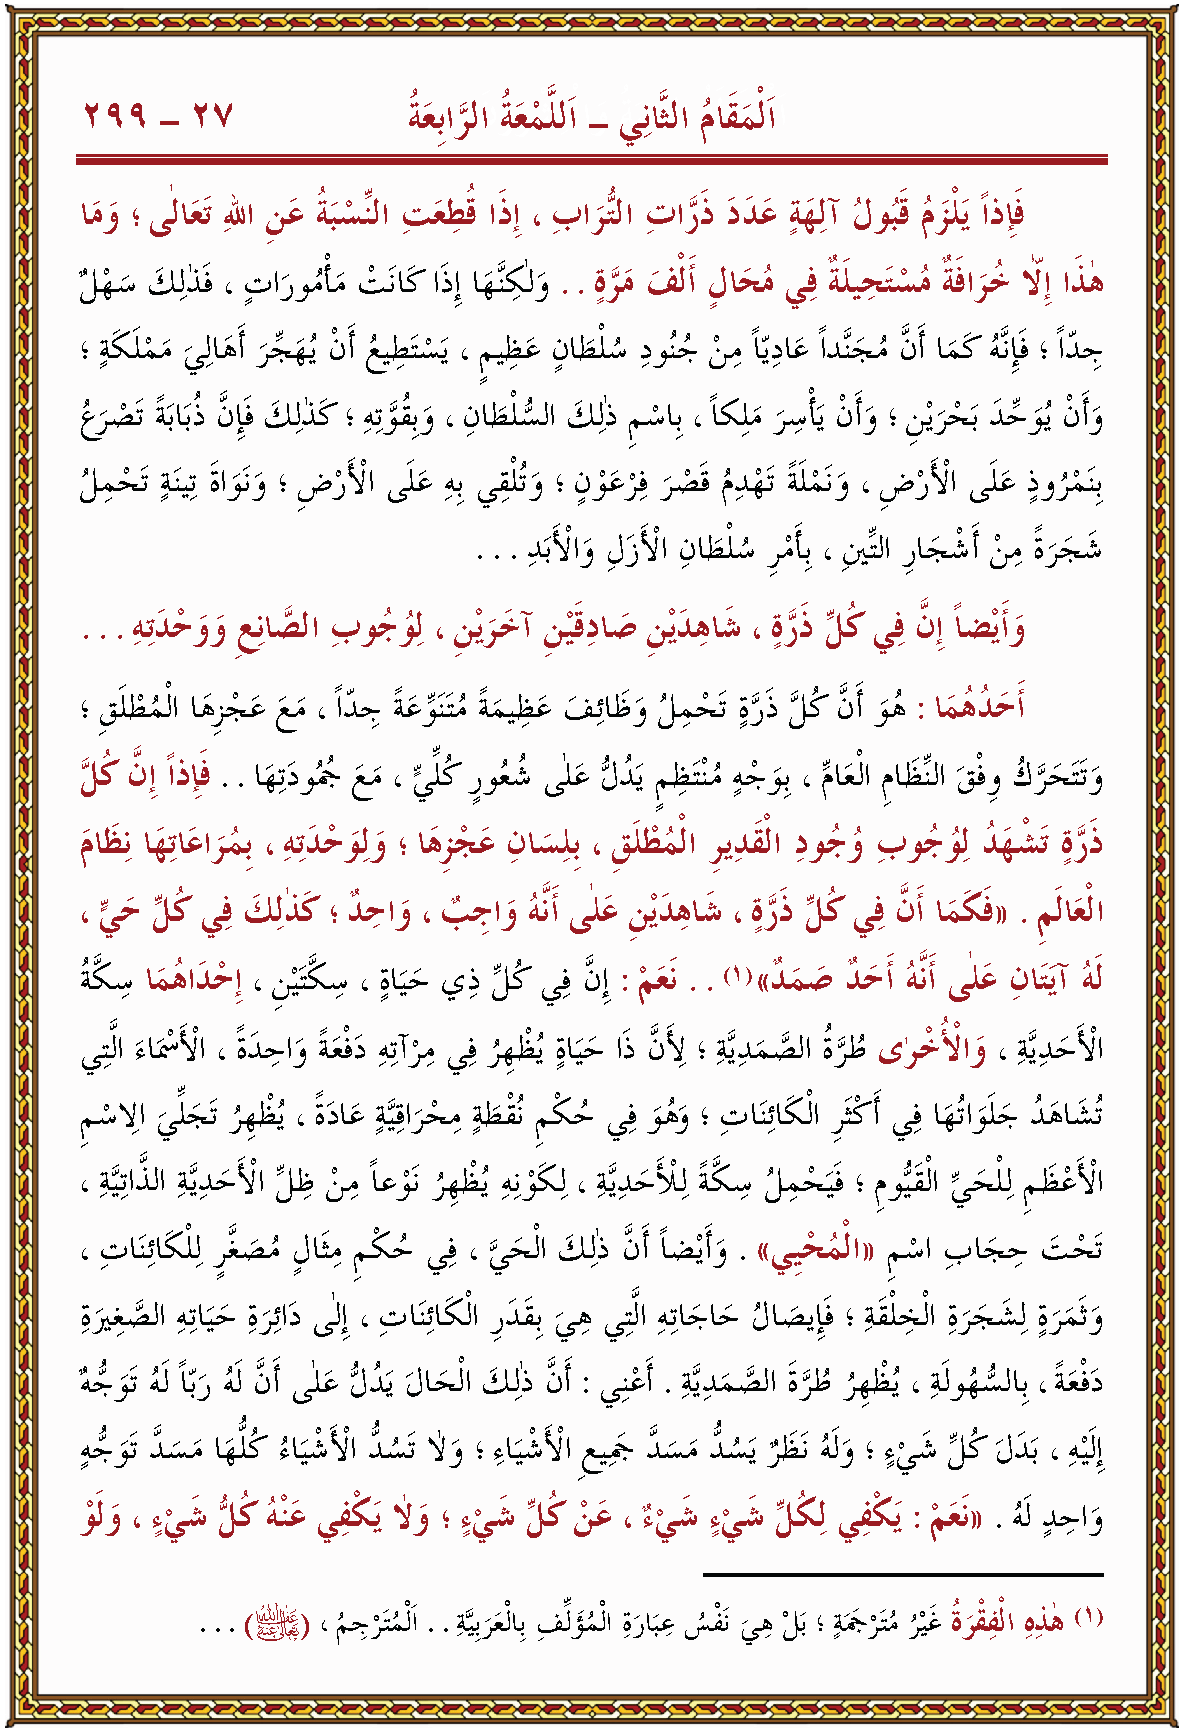 اَلْمَقَامُ الثَّانِي – اَللَّمْعَةُ الرَّابِعَةُ ٢٧ – ٢٩٩
فَإِذاً يَلْزَمُ قَبُولُ آلِهَةٍ عَدَدَ ذَرَّاتِ التُّرَابِ ، إِذَا قُطِعَتِ النِّسْبَةُ عَنِ اللهِ تَعَالٰى ؛ وَمَا
هٰذَا إِلاّ خُرَافَةٌ مُسْتَحِيلَةٌ فِي مُحَالٍ أَلْفَ مَرَّةٍ . . وَلٰكِنَّهَا إِذَا كَانَتْ مَأْمُورَاتٍ ، فَذٰلِكَ سَهْلٌ
جِدّاً ؛ فَإِنَّهُ كَمَا أَنَّ مُجَنَّداً عَادِيّاً مِنْ جُنُودِ سُلْطَانٍ عَظِيمٍ ، يَسْتَطِيعُ أَنْ يُهَجِّرَ أَهَالِيَ مَمْلَكَةٍ ؛
وَأَنْ يُوَحِّدَ بَحْرَيْنِ ؛ وَأَنْ يَأْسِرَ مَلِكاً ، بِاسْمِ ذٰلِكَ السُّلْطَانِ ، وَبِقُوَّتِهِ ؛ كَذٰلِكَ فَإِنَّ ذُبَابَةً تَصْرَعُ
بِنَمْرُوذٍ عَلَى الْأَرْضِ ، وَنَمْلَةً تَهْدِمُ قَصْرَ فِرْعَوْنٍ ؛ وَتُلْقِي بِهِ عَلَى الْأَرْضِ ؛ وَنَوَاةَ تِينَةٍ تَحْمِلُ
شَجَرَةً مِنْ أَشْجَارِ التِّينِ ، بِأَمْرِ سُلْطَانِ الْأَزَلِ وَالْأَبَدِ . . .
وَأَيْضاً إِنَّ فِي كُلِّ ذَرَّةٍ ، شَاهِدَيْنِ صَادِقَيْنِ آخَرَيْنِ ، لِوُجُوبِ الصَّانِعِ وَوَحْدَتِهِ . . .
أَحَدُهُمَا : هُوَ أَنَّ كُلَّ ذَرَّةٍ تَحْمِلُ وَظَائِفَ عَظِيمَةً مُتَنَوِّعَةً جِدّاً ، مَعَ عَجْزِهَا الْمُطْلَقِ ؛
وَتَتَحَرَّكُ وِفْقَ النِّظَامِ الْعَامِّ ، بِوَجْهٍ مُنْتَظِمٍ يَدُلُّ عَلٰى شُعُورٍ كُلِّيٍّ ، مَعَ جُمُودَتِهَا . . فَإِذاً إِنَّ كُلَّ
ذَرَّةٍ تَشْهَدُ لِوُجُوبِ وُجُودِ الْقَدِيرِ الْمُطْلَقِ ، بِلِسَانِ عَجْزِهَا ؛ وَلِوَحْدَتِهِ ، بِمُرَاعَاتِهَا نِظَامَ
الْعَالَمِ . «فَكَمَا أَنَّ فِي كُلِّ ذَرَّةٍ ، شَاهِدَيْنِ عَلٰى أَنَّهُ وَاجِبٌ ، وَاحِدٌ ؛ كَذٰلِكَ فِي كُلِّ حَيٍّ ،
لَهُ آيَتَانِ عَلٰى أَنَّهُ أَحَدٌ صَمَدٌ»(١) . . نَعَمْ : إِنَّ فِي كُلِّ ذِي حَيَاةٍ ، سِكَّتَيْنِ ، إِحْدَاهُمَا سِكَّةُ
الْأَحَدِيَّةِ ، وَالْأُخْرٰى طُرَّةُ الصَّمَدِيَّةِ ؛ لِأَنَّ ذَا حَيَاةٍ يُظْهِرُ فِي مِرْآتِهِ دَفْعَةً وَاحِدَةً ، الْأَسْمَاءَ الَّتِي
تُشَاهَدُ جَلَوَاتُهَا فِي أَكْثَرِ الْكَائِنَاتِ ؛ وَهُوَ فِي حُكْمِ نُقْطَةٍ مِحْرَاقِيَّةٍ عَادَةً ، يُظْهِرُ تَجَلِّيَ الِاسْمِ
الْأَعْظَمِ لِلْحَيِّ الْقَيُّومِ ؛ فَيَحْمِلُ سِكَّةً لِلْأَحَدِيَّةِ ، لِكَوْنِهِ يُظْهِرُ نَوْعاً مِنْ ظِلِّ الْأَحَدِيَّةِ الذَّاتِيَّةِ ،
تَحْتَ حِجَابِ اسْمِ «الْمُحْيِي» . وَأَيْضاً أَنَّ ذٰلِكَ الْحَيَّ ، فِي حُكْمِ مِثَالٍ مُصَغَّرٍ لِلْكَائِنَاتِ ،
وَثَمَرَةٍ لِشَجَرَةِ الْخِلْقَةِ ؛ فَإِيصَالُ حَاجَاتِهِ الَّتِي هِيَ بِقَدَرِ الْكَائِنَاتِ ، إِلٰى دَائِرَةِ حَيَاتِهِ الصَّغِيرَةِ
دَفْعَةً ، بِالسُّهُولَةِ ، يُظْهِرُ طُرَّةَ الصَّمَدِيَّةِ . أَعْنِي : أَنَّ ذٰلِكَ الْحَالَ يَدُلُّ عَلٰى أَنَّ لَهُ رَبّاً لَهُ تَوَجُّهٌ
إِلَيْهِ ، بَدَلَ كُلِّ شَيْءٍ ؛ وَلَهُ نَظَرٌ يَسُدُّ مَسَدَّ جَمِيعِ الْأَشْيَاءِ ؛ وَلاٰ تَسُدُّ الْأَشْيَاءُ كُلُّهَا مَسَدَّ تَوَجُّهٍ
وَاحِدٍ لَهُ . «نَعَمْ : يَكْفِي لِكُلِّ شَيْءٍ شَيْءٌ ، عَنْ كُلِّ شَيْءٍ ؛ وَلاٰ يَكْفِي عَنْهُ كُلُّ شَيْءٍ ، وَلَوْ
(١) هٰذِهِ الْفِقْرَةُ غَيْرُ مُتَرْجَمَةٍ ؛ بَلْ هِيَ نَفْسُ عِبَارَةِ الْمُؤَلِّفِ بِالْعَرَبِيَّةِ . . اَلْمُتَرْجِمُ ، ( ) . . .